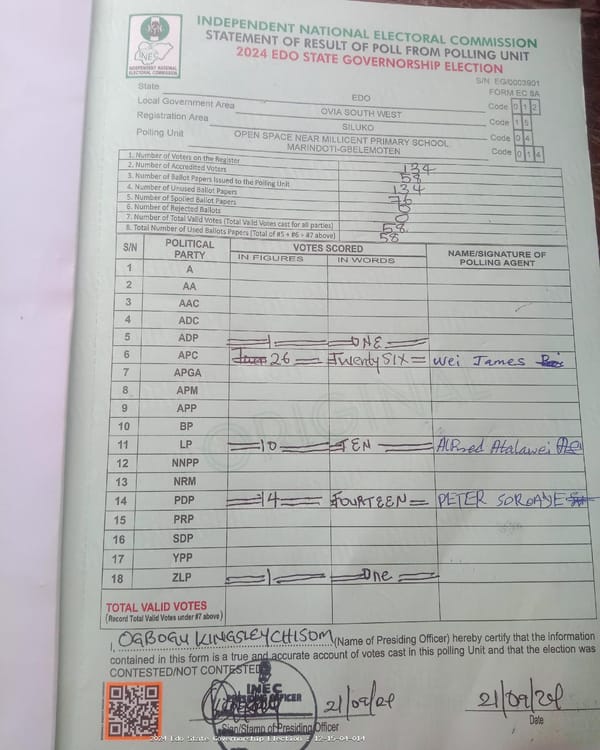 INDEPENDENT NATIONAL ELECTORAL COMMISSION
STATEMENT OF RESULT OF POLL FROM POLLING UNIT
2024 EDO STATE GOVERNORSHIP ELECTION
INEC
INDEPENDENT NATIONAL ELECTORAL COMMISSION
S/N EG/0003901
FORM EC 8A
State EDO Code 0 1 2
Local Government Area OVIA SOUTH WEST Code 1 5
Registration Area SILUKO Code 0 4
Polling Unit OPEN SPACE NEAR MILLICENT PRIMARY SCHOOL MARINDOTI-GBELEMOTEN Code 0 1 4
1. Number of Voters on the Register 134
2. Number of Accredited Voters 58
3. Number of Ballot Papers Issued to the Polling Unit 134
4. Number of Unused Ballot Papers 76
5. Number of Spoiled Ballot Papers 0
6. Number of Rejected Ballots 0
7. Number of Total Valid Votes (Total Valid Votes cast for all parties) 58
8. Total Number of Used Ballots Papers (Total of #5 + #6 + #7 above) 58
S/N POLITICAL PARTY VOTES SCORED NAME/SIGNATURE OF POLLING AGENT
IN FIGURES IN WORDS
1 A
2 AA
3 AAC
4 ADC
5 ADP 1 ONE
6 APC 26 Twenty SIX Wei James
7 APGA
8 APM
9 APP
10 BP
11 LP 10 TEN Alfred Atalawei
12 NNPP
13 NRM
14 PDP 14 FOURTEEN PETER
15 PRP
16 SDP
17 YPP
18 ZLP 1 One
ORIGINAL
TOTAL VALID VOTES
(Record Total Valid Votes under #7 above)
I, OGBOGU KINGSLEY CHISOM (Name of Presiding Officer) hereby certify that the information
contained in this form is a true and accurate account of votes cast in this polling Unit and that the election was
CONTESTED/NOT CONTESTED
INEC
PRESIDING OFFICER
21/09/24 21/09/24
Sign/Stamp of Presiding Officer Date
2024 Edo State Governorship Election - 12-15-04-014